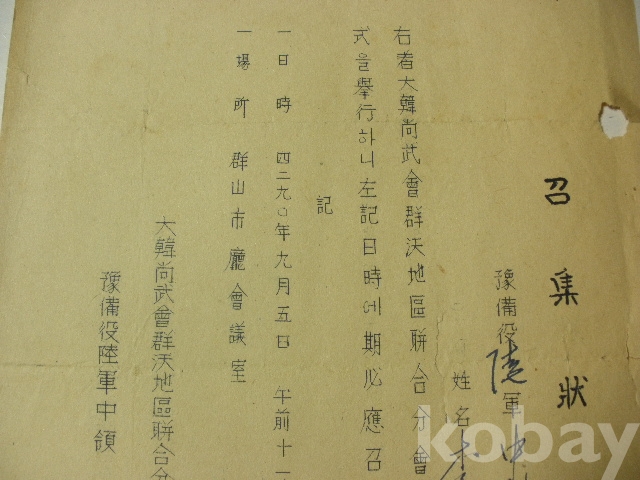 召集狀
豫備役陸軍中
姓名
右者大韓尚武會群沃地區聯合分會
式을擧行하니左記日時에期必應召
記
一日時 四二九〇年九月五日 午前十一
一場所 群山市廳會議室
大韓尚武會群沃地區聯合分
豫備役陸軍中領
kobay